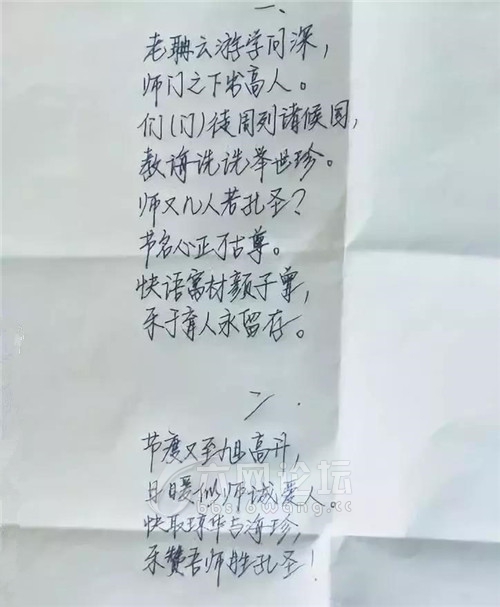 一、
老聃云游学问深，
师门之下出高人。
们(门)徒周列诸候国，
教诲诜诜举世珍。
师又几人若孔圣？
节名心正万古尊。
快语寓材颜子尊，
乐于育人永留存。
二、
节度又至旭高升，
日暖似师诚爱人。
快取琼华与海珍，
乐赞吾师胜孔圣！
六网论坛
bbs.lowang.com